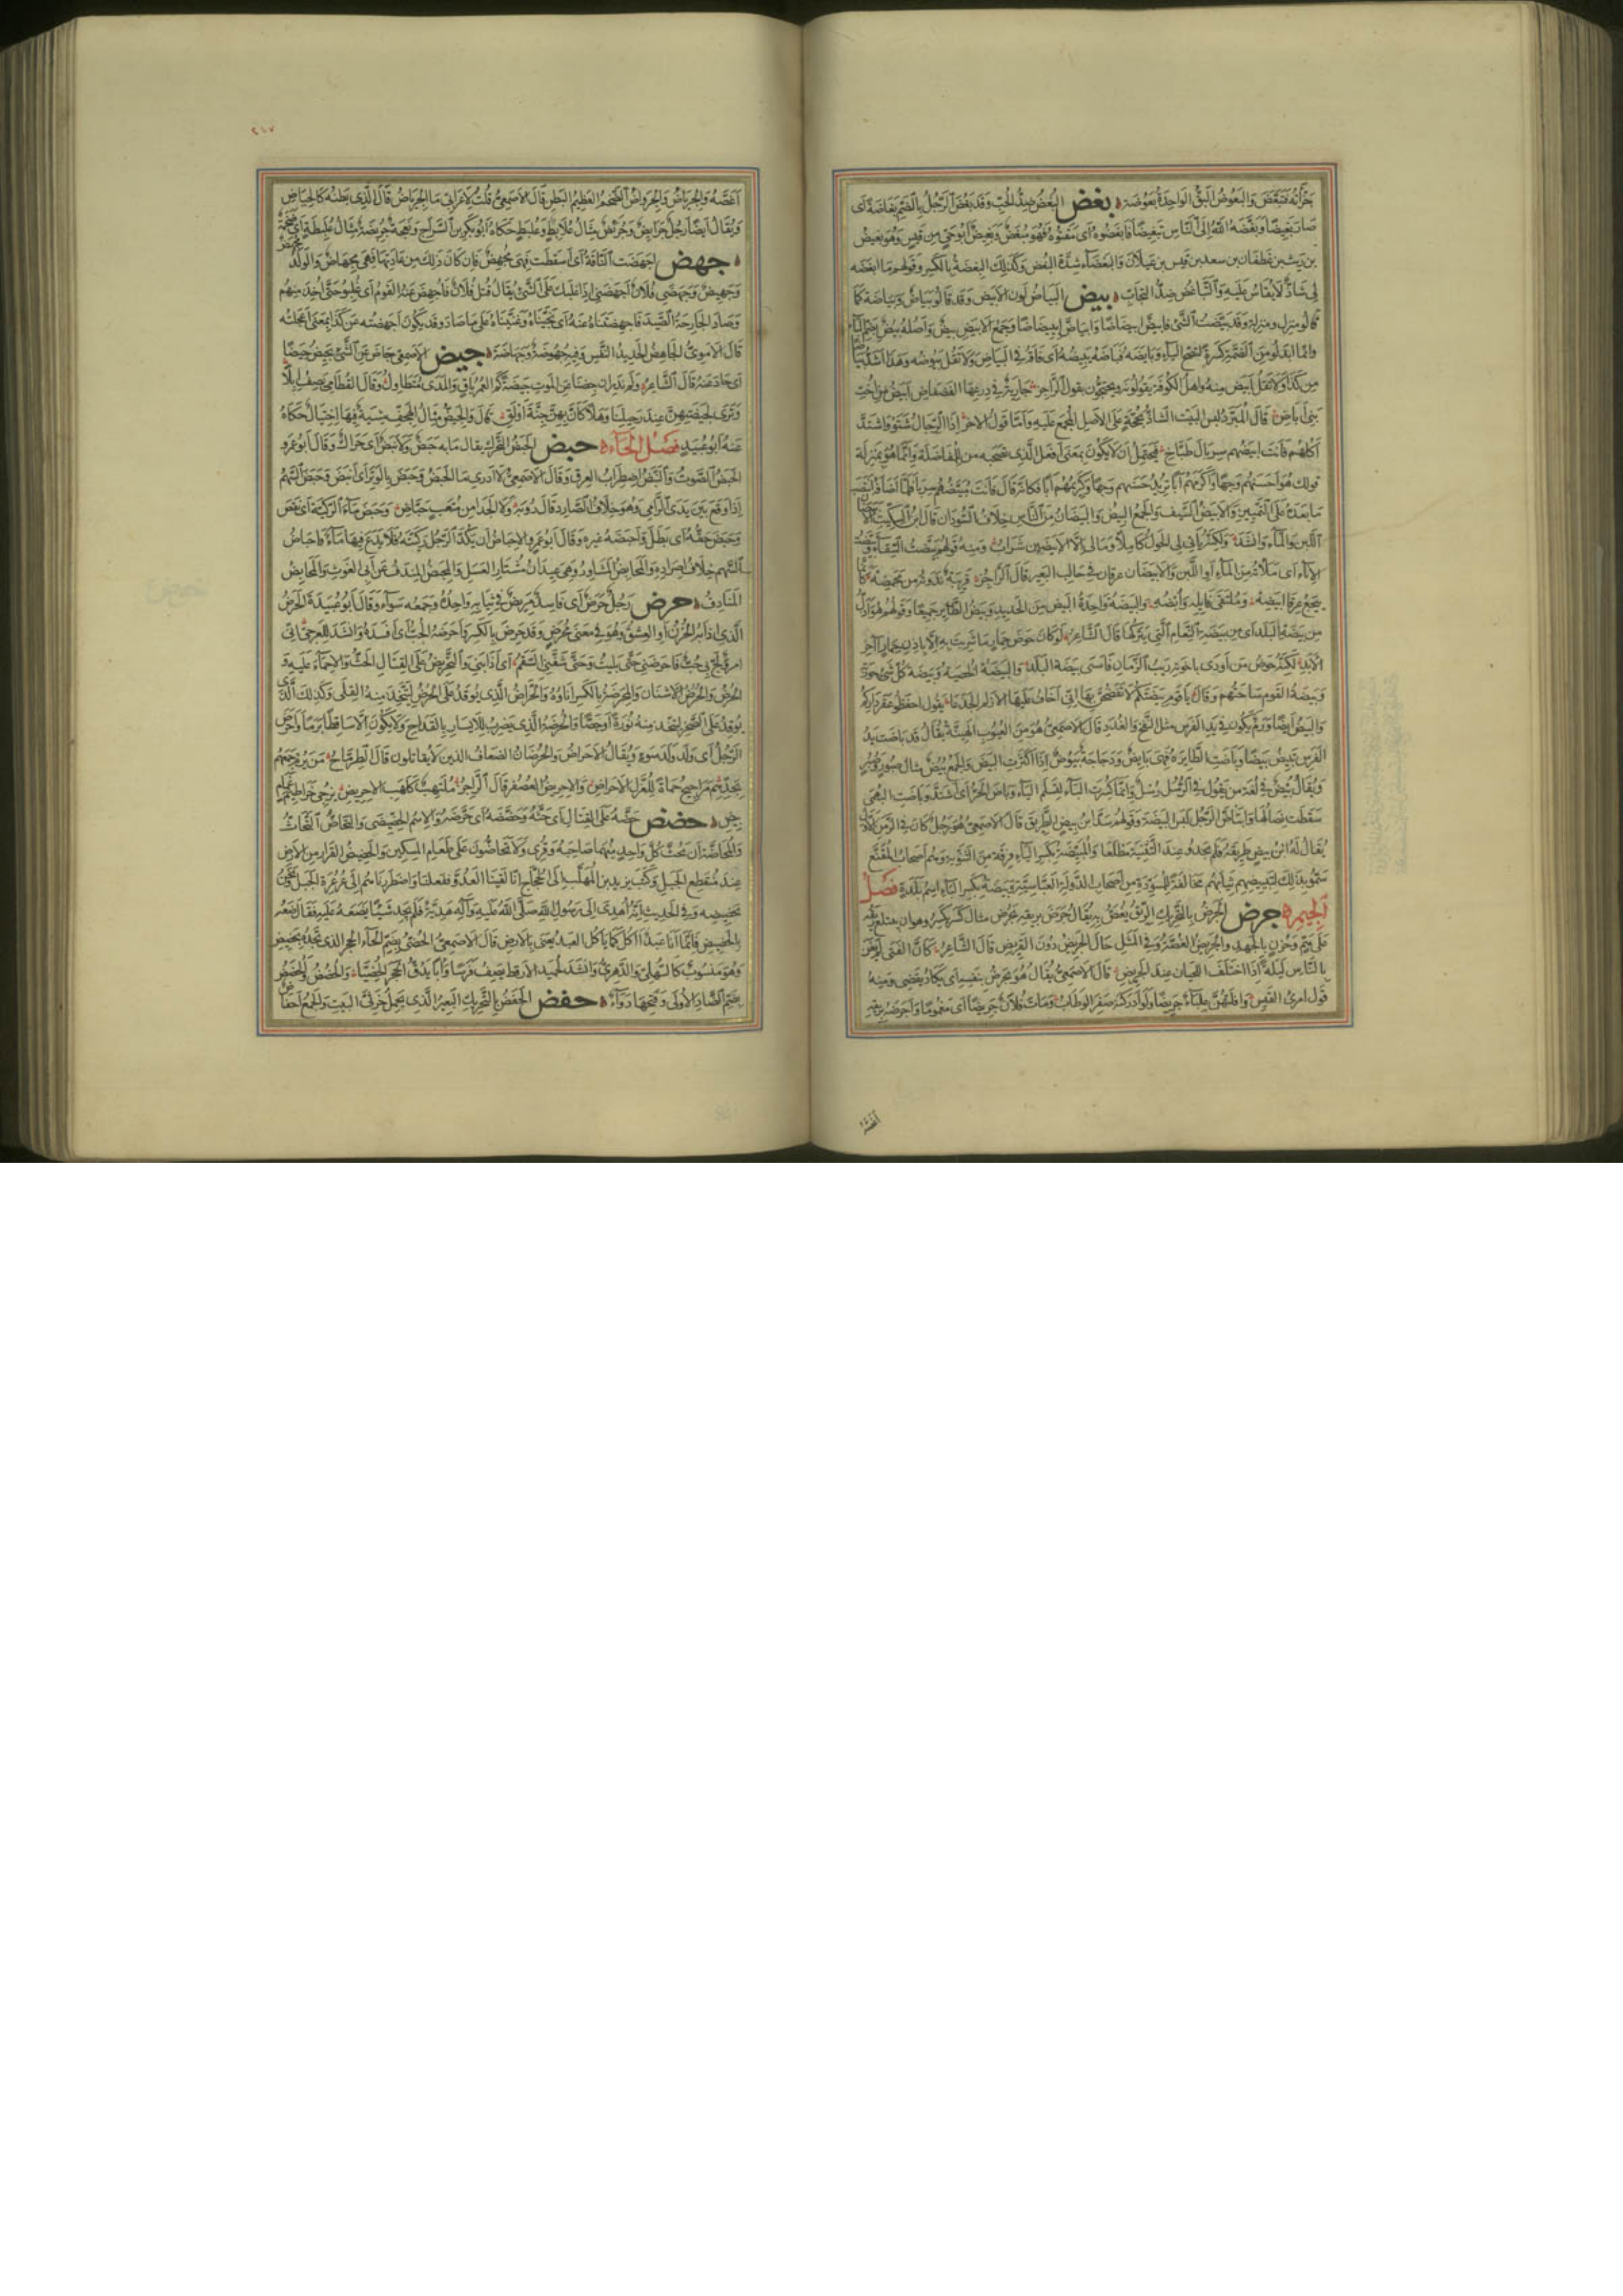 بَغَضَ والبَعُوضُ البَقُّ الواحدةُ بَعُوضَةٌ بغض البُغْضُ ضِدُّ الحُبِّ وقد بَغُضَ الرَّجُلُ بالضَّمِّ بَغَاضَةً أى
صار بَغِيضًا وبَغَّضَهُ اللهُ إلى النّاس تبغيضًا فأبغضوه أى مقتوه فهو مُبْغَضٌ وبغيضٌ أبو حىّ من قيس وهو بغيض
بن ريث بن غطفان بن سعد بن قيس بن عيلان والبغضاء شدّة البغض وكذلك البغضة بالكسر وقولهم ما أبغضه
لى شاذّ لا يقاس عليه والتباغض ضدّ التحابّ بيض البياض لون الأبيض وقد قالوا بياض وبياضة كما
قالوا منزل ومنزلة وقد بيّضت الشىء فابيضّ ابيضاضا وابياضّ ابييضاضا وجمع الأبيض بيض وأصله بيض بضم الباء
وانما ابدلوا من الضمّة كسرة لتصحّ الياء وبايضه فباضه يبيضه أى فاقه فى البياض ولا تقل يبوضه وهذا أشدّ بياضا
من كذا ولا تقل أبيض منه وأهل الكوفة يقولونه ويحتجّون بقول الراجز جارية فى درعها الفضفاض أبيض من أخت
بنى أباض قال المبرّد ليس البيت الشاذّ بحجّة على الأصل المجمع عليه وأمّا قول الآخر إذا الرجال شتوا واشتدّ
أكلهم فأنت أبيضهم سربال طبّاخ فيحتمل أن لا يكون بمعنى أفعل الذى تصحبه من للمفاضلة وانّما هو بمنزلة
قولك هو أحسنهم وجها وأكرمهم أبا تريد حسنهم وجها وكريمهم أبا فكانّه قال فأنت مبيضّهم سربالا فلمّا أضافه انتصب
ما بعده على التمييز والأبيض السيف والجمع البيض والبيضان من الناس خلاف السودان قال ابن السكيت الأبيضان
اللبن والماء وأنشد ولكنّه يأتى لى الحول كاملا ومالى إلّا الأبيضين شراب ومنه قولهم بيّضت السقاء و
الإناء أى ملأته من الماء أو اللبن والأبيضان عرقان فى حالب البعير قال الراجز قريبة ندوته من محمضه كأنّما
ييجع عرقا أبيضه وملتقى فائله وأبضه والبيضة واحدة البيض من الحديد وبيض الطائر جميعا وقولهم هو أذلّ
من بيضة البلد أى من بيضة النعام التى يتركها قال الشاعر لو كان حوض حمار ما شربت به إلّا بإذن حمار آخر
الأبد لكنّه حوض من أودى بإخوته ريب الزمان فأمسى بيضة البلد والبيضة الخصية وبيضة كلّ شىء حوزته
وبيضة القوم ساحتهم وقال يا قوم بيضتكم لا تفضحنّ بها إنّى أخاف عليها الأزلم الجذعا يقول احفظوا عقر داركم
والبيض أيضا ورم يكون فى يد الفرس مثل النفخ والغدد قال الأصمعىّ هو من العيوب الهيّنة يقال قد باضت يد
الفرس تبيض بيضا وباضت الطائرة فهى بائض ودجاجة بيوض إذا أكثرت البيض والجمع بيض مثال صبور وصبر
ويقال بيض فى لغة من يقول فى الرسل رسل وانّما كسرت الباء لتسلم الياء وباض الحرّ أى اشتدّ وباضت البهمى
سقطت نصالها وابتاض الرجل لبس البيضة وقولهم سدّ ابن بيض الطريق قال الأصمعىّ هو رجل كان فى الزمن الأول
يقال له ابن بيض عقر ناقته على ثنيّة فسدّ بها الطريق
سمّوا بذلك لتبييضهم ثيابهم مخالفة للمسوّدة من أصحاب الدولة العبّاسيّة وبيضة بكسر الباء اسم بلدة فصل
الجيم جرض الجرض بالتحريك الريق يغصّ به يقال جرض بريقه يجرض مثال كسر يكسر وهو أن يبتلع ريقه
على همّ وحزن بالجهد والجريض الغصّة وفى المثل حال الجريض دون القريض قال الشاعر كأنّ الفتى لم يغن
بالناس ليلة إذا اختلف اللحيان عند الجريض قال الأصمعىّ يقال هو يجرض بنفسه أى يكاد يقضى ومنه
قول امرئ القيس وأفلتهنّ علباء جريضا ولو أدركنه صفر الوطاب ومات فلان جريضا أى مغموما وأجرضه بريقه
أغصّه
٢١٧
أغصّه والجرياض والجرواض الضخم العظيم البطن قال الأصمعىّ قلت لأعرابىّ ما الجرياض قال الذى بطنه كالحياض
ويقال أيضا رجل جرائض وجرئض مثال علابط وعلبط حكاه أبو بكر بن السراج ونعجة جرئضة مثال علبطة أى ضخمة
جهض أجهضت الناقة أى أسقطت فهى مجهض فإن كان ذلك من عادتها فهى مجهاض والولد مجهض
وجهيض وجهضنى فلان وأجهضنى إذا غلبك على الشىء يقال قتل فلان فأجهض عنه القوم أى غلبوا حتّى أخذ منهم
وصاد الجارحة الصيد فأجهضناه عنه أى نحّيناه وغلبناه على ما صاد وقد يكون أجهضته عن كذا بمعنى أعجلته
قال الأموىّ الجاهض الحديد النفس وفيه جهوضة وجهاضة جيض الأصمعىّ جاض عن الشىء يجيض جيضا
أى حاد عنه قال الشاعر ولم ندر إن جضنا عن الموت جيضة كم العمر باق والمدى متطاول وقال القطامى يصف إبلا
وترى لجيضتهنّ عند رحيلنا وهلا كأنّ بهنّ جنّة أولق والجيضّ مثال الهجفّ مشية فيها اختيال حكاه
عنه أبو عبيد فصل الحاء حبض الحبض التحرّك يقال ما به حبض ولا نبض أى حراك وقال أبو عمرو
الحبض الصوت والنبض اضطراب العرق وقال الأصمعىّ لا أدرى ما الحبض وحبض بالوتر أى أنبض وحبض السهم
إذا وقع بين يدى الرامى وهو خلاف الصارد قال رؤبة ولا الجدا من متعب حبّاض وحبض ماء الركيّة أى نقص
وحبض حقّه أى بطل وأحبضه غيره وقال أبو عمرو الإحباض أن يكدّ الرجل ركيّته فلا يدع فيها ماء وإحباض
السهم خلاف إصراده والمحابض المشاور وهى عيدان مشتار العسل والمحبض المندف عن أبى الغوث والمحابض
المنادف حرض رجل حرض أى فاسد مريض فى ثيابه واحده وجمعه سواء وقال أبو عبيدة الحرض
الذى أذابه الحزن أو العشق وهو فى معنى محرض وقد حرض بالكسر وأحرضه الحبّ أى أفسده وأنشد للعرجىّ إنّى
امرؤ لجّ بى حبّ فأحرضنى حتّى بليت وحتّى شفّنى السقم أى أذابنى والتحريض على القتال الحثّ والإحماء عليه و
الحرض والحرض الأشنان والمحرضة بالكسر إناؤه والحرّاض الذى يوقد على الحرض ليتّخذ منه القلى وكذلك الذى
يوقد على الصخر ليتّخذ منه نورة أو جصّا والحرضة الذى يضرب للأيسار بالقداح ولا يكون إلّا ساقطا برما وأحرض
الرجل أى ولد ولد سوء ويقال الأحراض والحرضان الضعاف الذين لا يقاتلون قال الطرمّاح من يرم جمعهم
يجدهم مراجيح حماة للعزّل الأحراض والإحريض العصفر قال الراجز ملتهب كلهب الإحريض يزجى خراطيم غمام
بيض حضض حضّه على القتال أى حثّه وحضّضه أى حرّضه والاسم الحضّيضى والتحاضّ التحاثّ
والمحاضّة أن يحثّ كلّ واحد منهما صاحبه وقرئ ولا تحاضّون على طعام المسكين والحضيض القرار من الأرض
عند منقطع الجبل وكتب يزيد بن المهلّب إلى الحجّاج إنّا لقينا العدوّ ففعلنا واضطررناهم إلى عرعرة الجبل ونحن
بحضيضه وفى الحديث أنّه أهدى إلى رسول الله صلّى الله عليه وآله هديّة فلم يجد شيئا يضعه عليه فقال ضعه
بالحضيض فإنّما أنا عبد آكل كما يأكل العبد يعنى بالأرض قال الأصمعىّ الحضّىّ بضمّ الحاء الحجر الذى تجده بحضيض
وهو منسوب كالسهلىّ والدهرىّ وأنشد لحميد الأرقط يصف فرسا وأبا يدقّ الحجر الحضيّا والحضض والحضض
بضمّ الضاد الأولى وفتحها دواء حفض الحفض بالتحريك البعير الذى يحمل خرثىّ البيت والجمع أحفاض